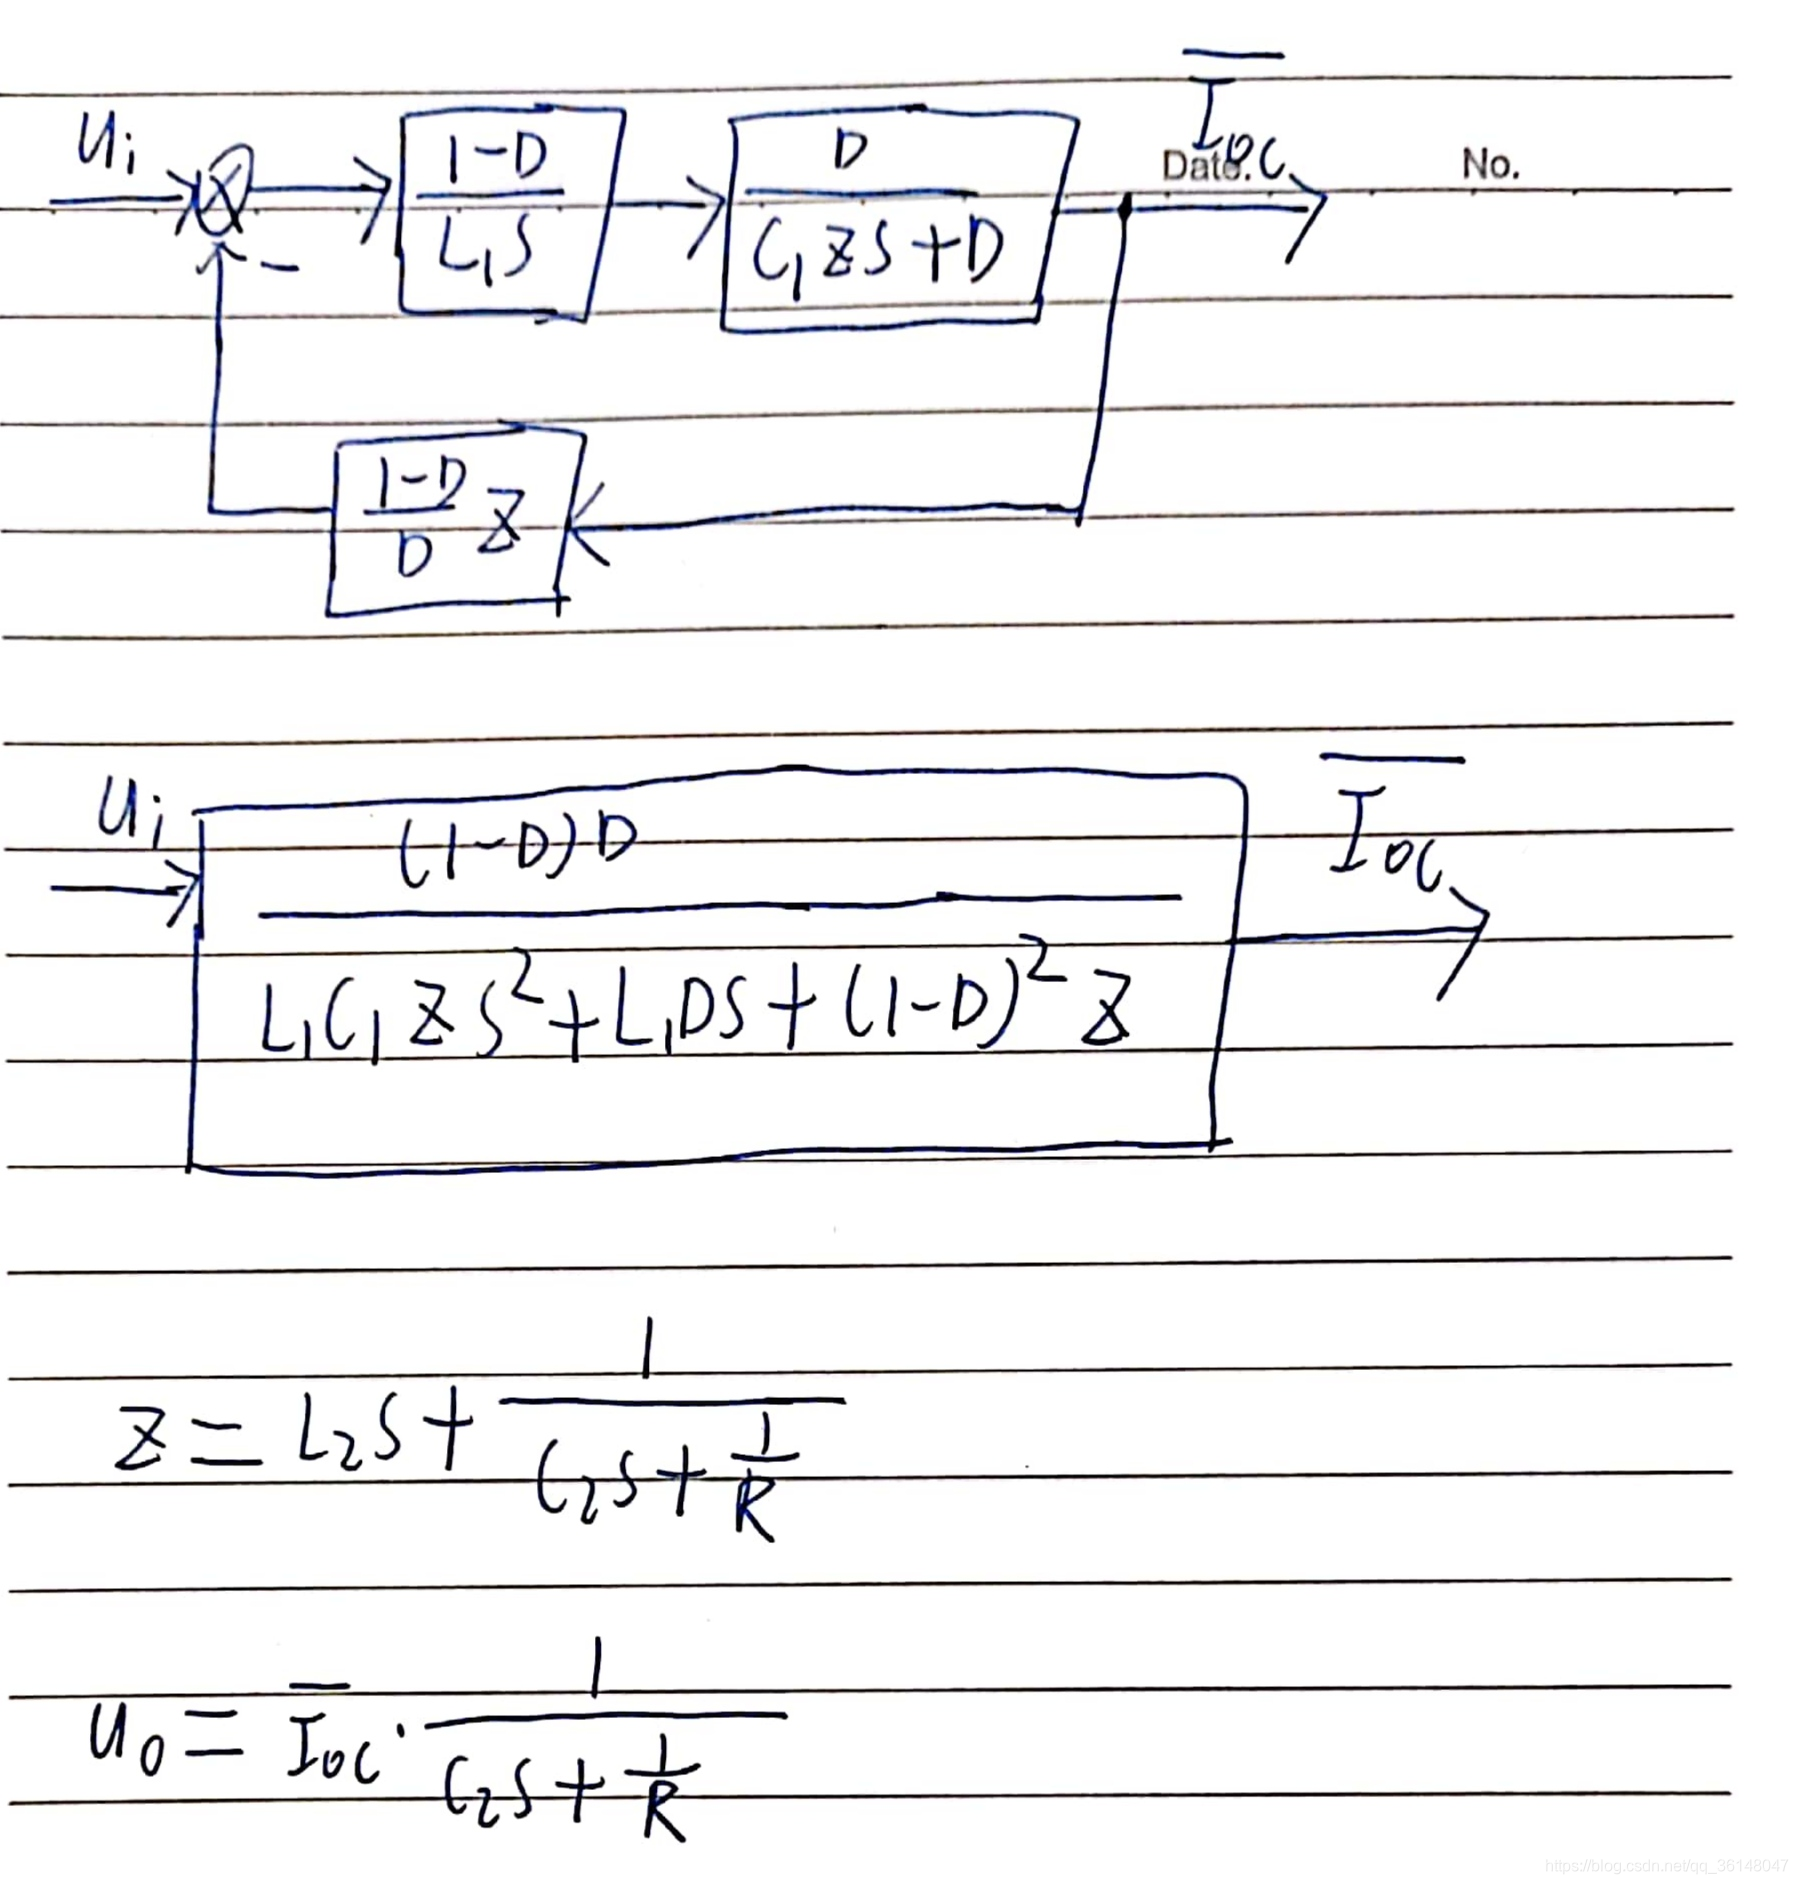 Date. No.
Ui
1-D / L₁S
D / C₁ZS+D
I̅oc
-
1-D / D Z
Ui
(1-D)D / L₁C₁ZS²+L₁DS+(1-D)²Z
I̅oc
Z = L₂S + 1 / C₂S + 1/R
U₀ = I̅oc · 1 / C₂S + 1/R
https://blog.csdn.net/qq_36148047